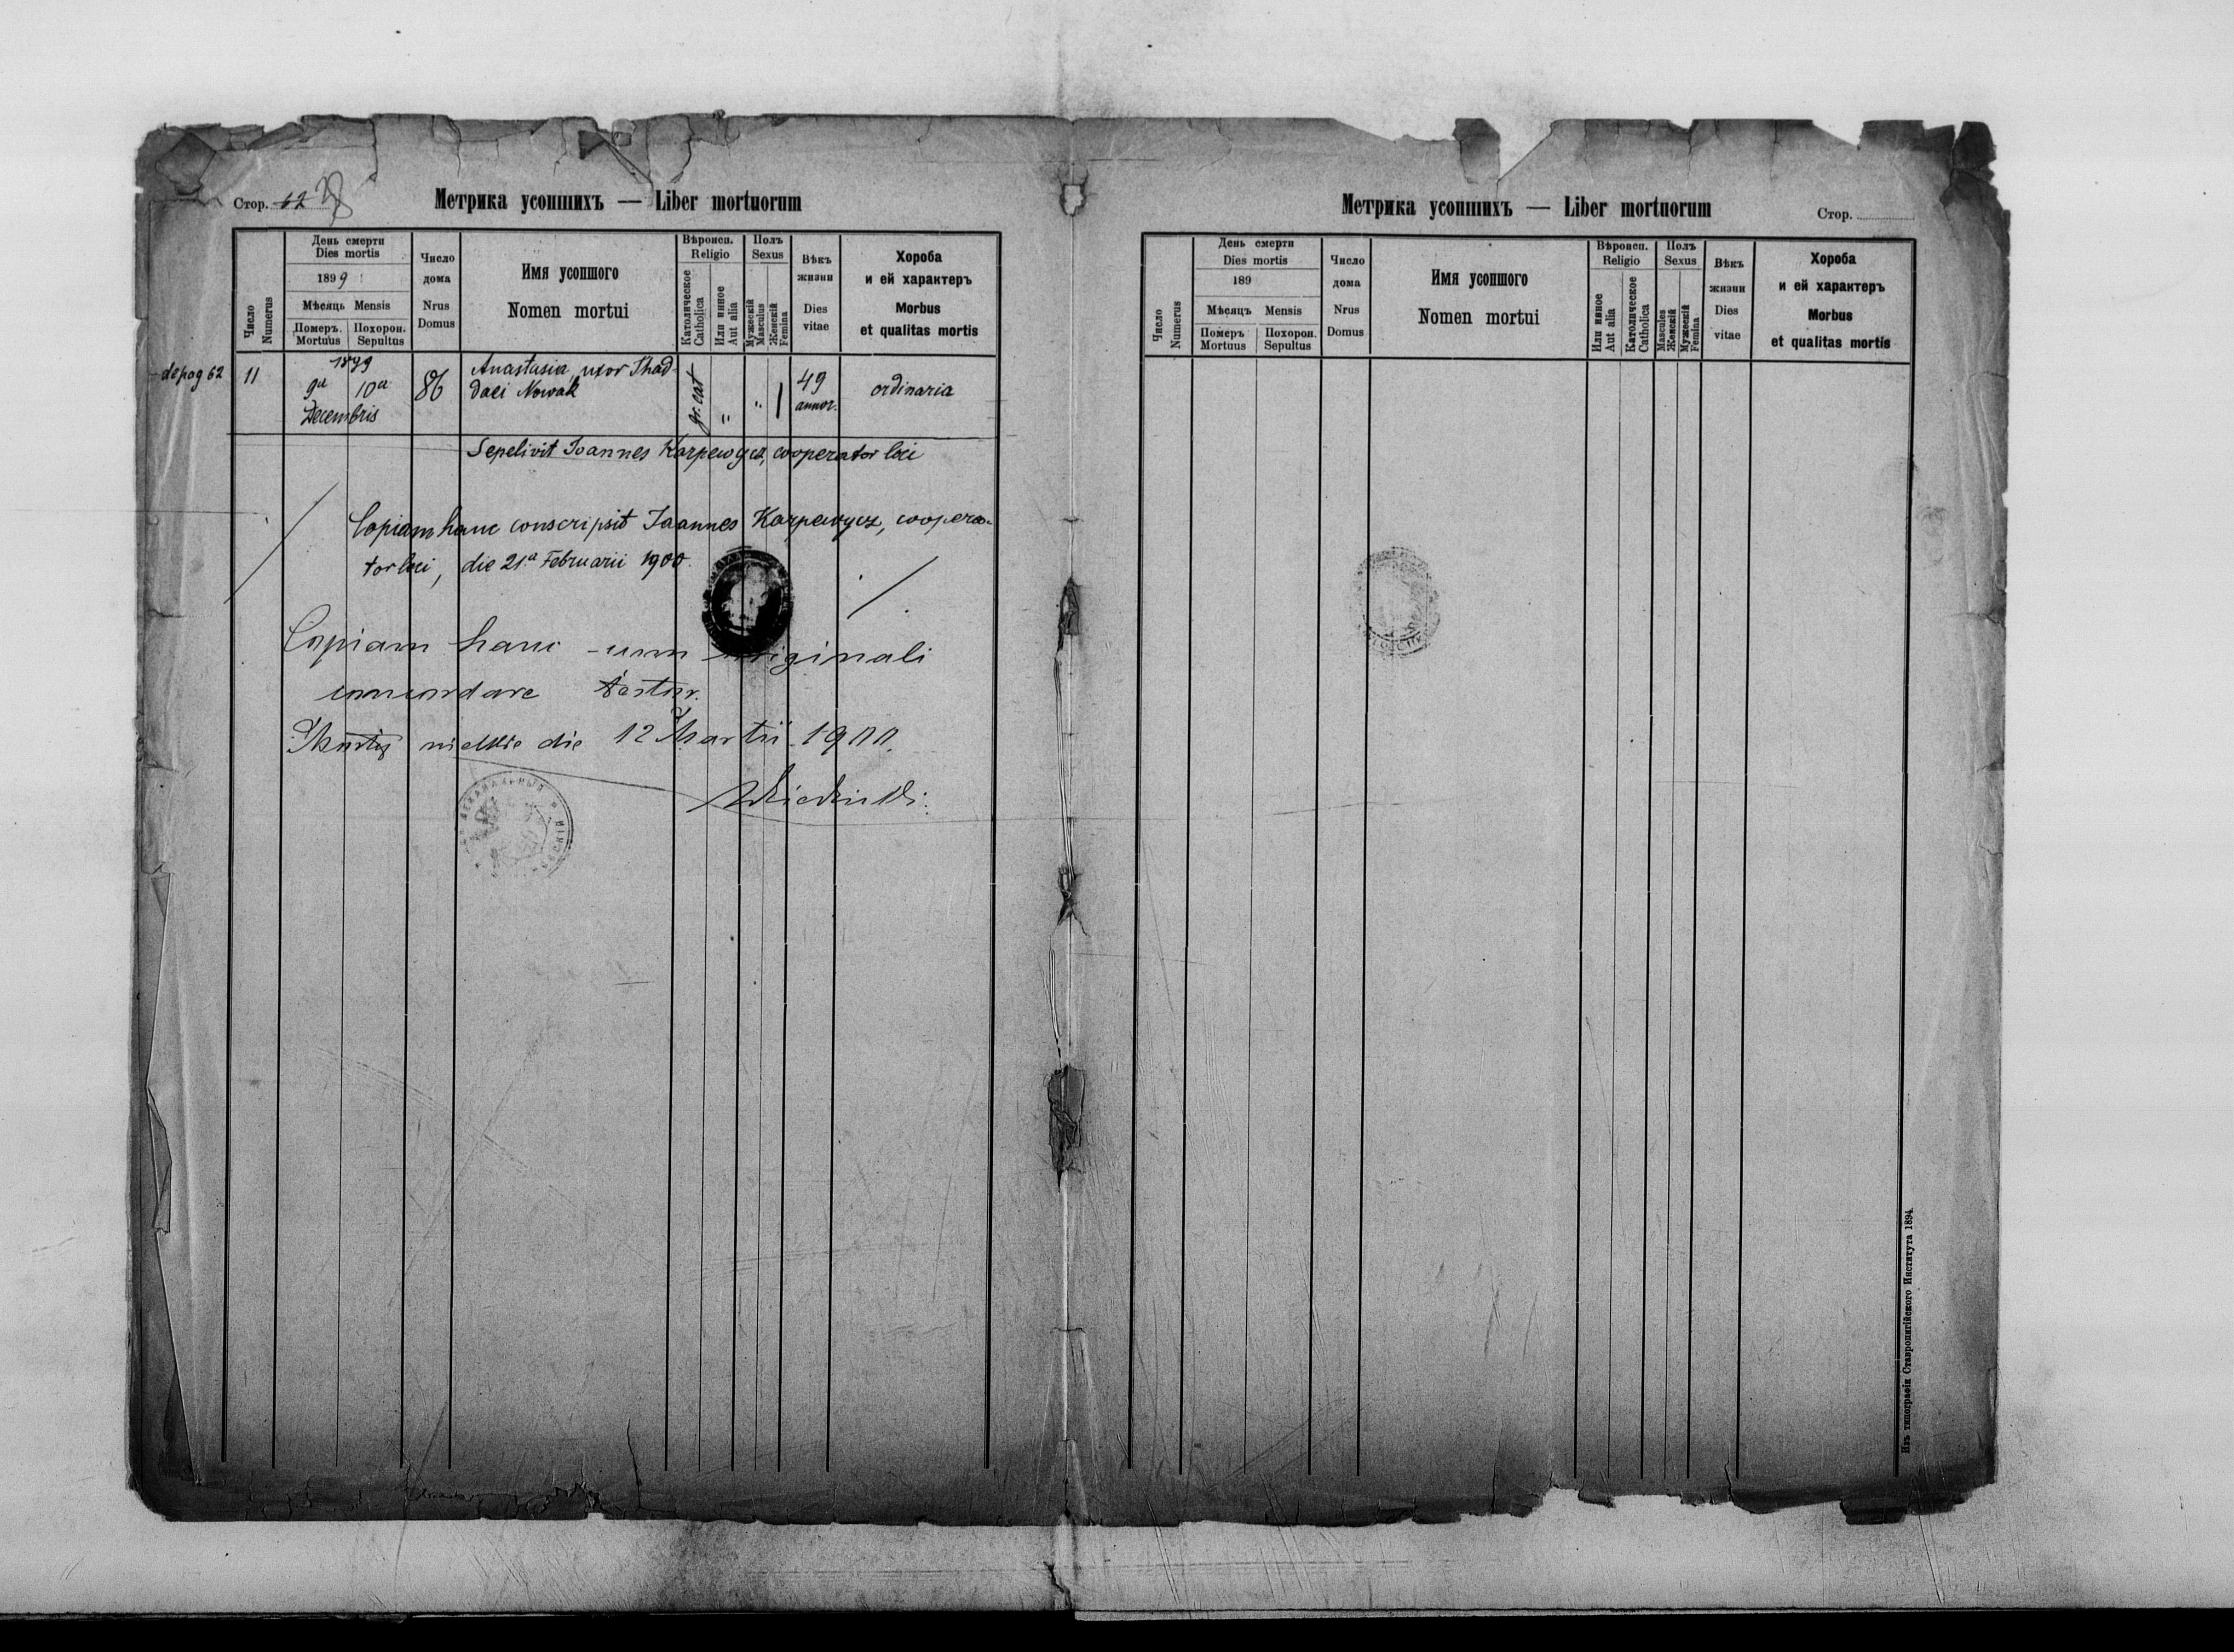 Стор. 62
Метрика усопшихъ — Liber mortuorum
Число
Numerus
День смерти
Dies mortis
1899
Мѣсяць Mensis
Померъ. Похорон.
Mortuus Sepultus
Число
дома
Nrus
Domus
Имя усопшого
Nomen mortui
Вѣроисп.
Religio
Католическое
Catholica
Или инное
Aut alia
Полъ
Sexus
Мужескій
Masculus
Женскій
Femina
Вѣкъ
жизни
Dies
vitae
Хороба
и ей характеръ
Morbus
et qualitas mortis
de pag 62
11
1899
9a 10a
Decembris
86
Anastasia, uxor Thad-
daei Nowak
gr. cat
"
"
1
49
annor.
ordinaria
Sepelivit Joannes Karpewycz, cooperator loci
Copiam hanc conscripsit Joannes Karpewycz, coopera-
tor loci, die 21a Februarii 1900.
Copiam hanc cum originali
concordare testor.
die 12 Martii 1900.
Метрика усопшихъ — Liber mortuorum
Стор.
Число
Numerus
День смерти
Dies mortis
189
Мѣсяцъ Mensis
Померъ Похорон.
Mortuus Sepultus
Число
дома
Nrus
Domus
Имя усопшого
Nomen mortui
Вѣроисп.
Religio
Или инное
Aut alia
Католическое
Catholica
Полъ
Sexus
Masculus
Женскій
Мужескій
Femina
Вѣкъ
жизни
Dies
vitae
Хороба
и ей характеръ
Morbus
et qualitas mortis
Изъ типографіи Ставропигійского Института 1894.